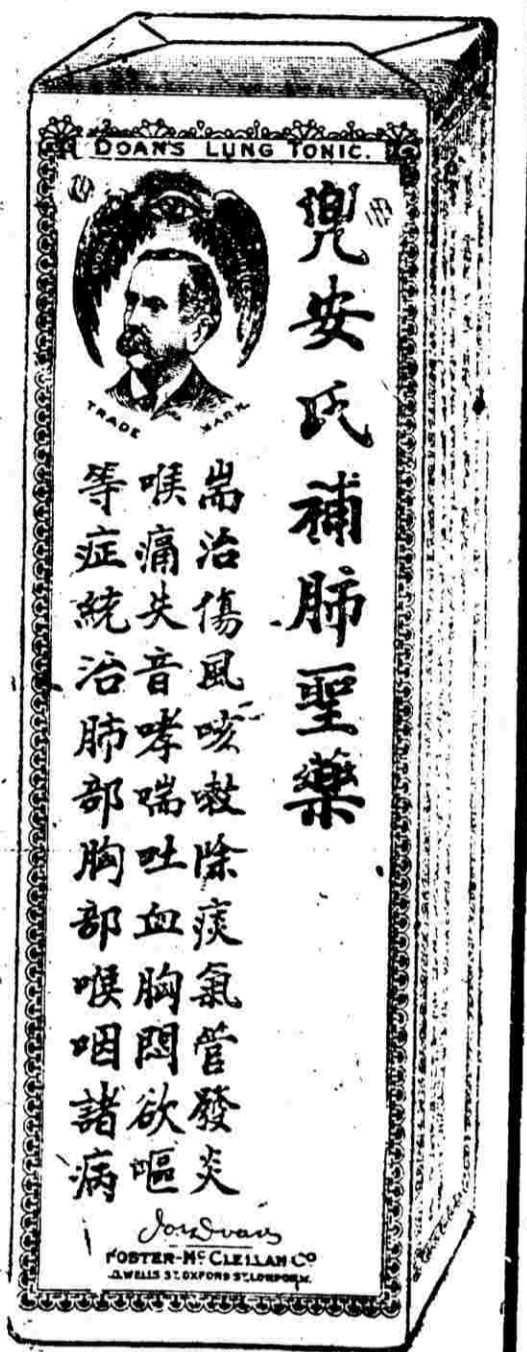 DOAN'S LUNG TONIC.
TRADE MARK
兜安氏補肺聖藥
耑治傷風咳嗽除痰氣管發炎
喉痛失音哮喘吐血胸悶欲嘔
等症統治肺部胸部喉咽諸病
FOSTER-McCLELLAN Co
WELLS ST OXFORD ST LONDON